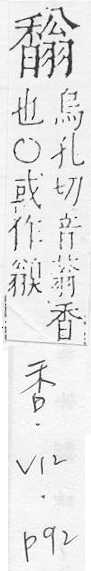 烏孔切音蓊香
也〇或作
香.
V12
.
p92